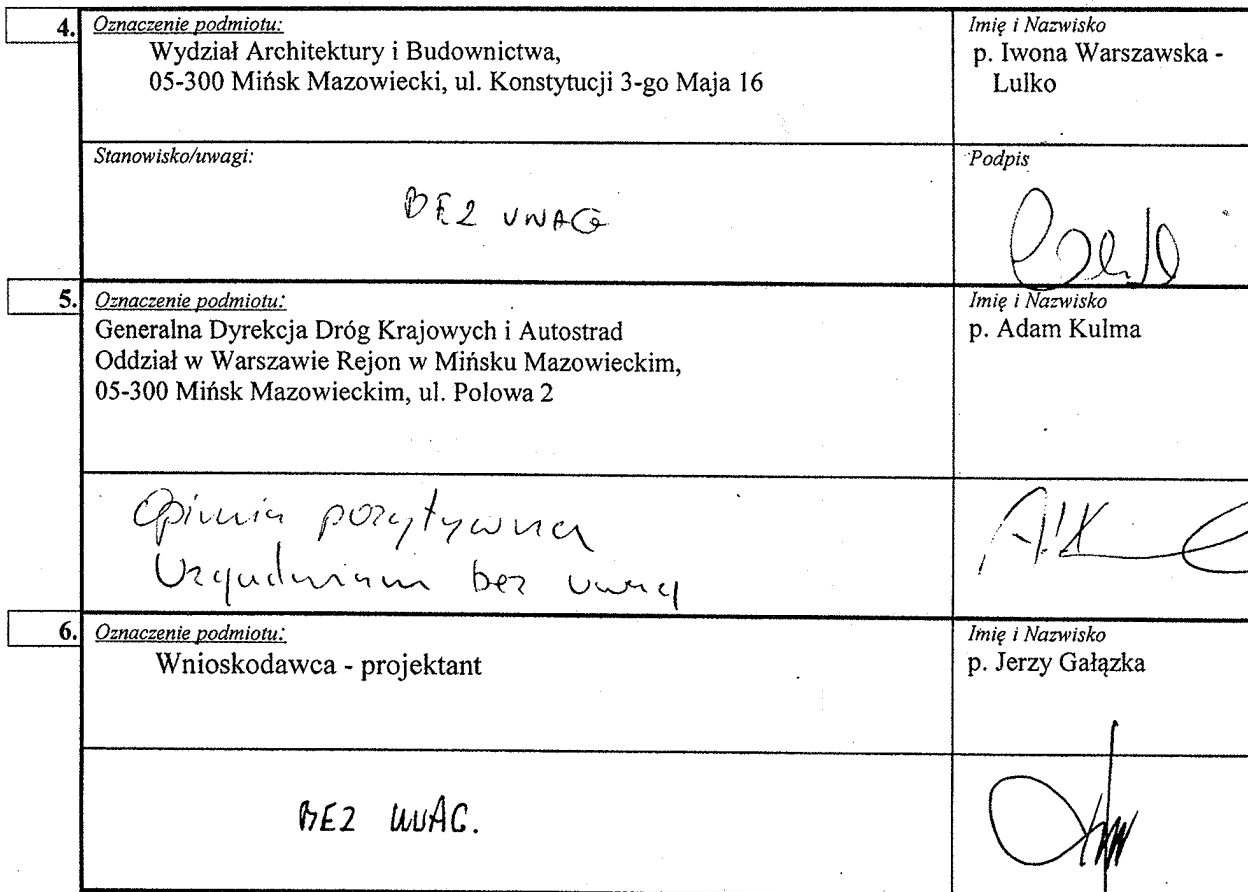 4. Oznaczenie podmiotu:
Wydział Architektury i Budownictwa,
05-300 Mińsk Mazowiecki, ul. Konstytucji 3-go Maja 16
Imię i Nazwisko
p. Iwona Warszawska -
Lulko
Stanowisko/uwagi:
BEZ UWAG
Podpis
5. Oznaczenie podmiotu:
Generalna Dyrekcja Dróg Krajowych i Autostrad
Oddział w Warszawie Rejon w Mińsku Mazowieckim,
05-300 Mińsk Mazowieckim, ul. Polowa 2
Imię i Nazwisko
p. Adam Kulma
Opinia pozytywna
Uzgadniam bez uwag
6. Oznaczenie podmiotu:
Wnioskodawca - projektant
Imię i Nazwisko
p. Jerzy Gałązka
BEZ UWAG.